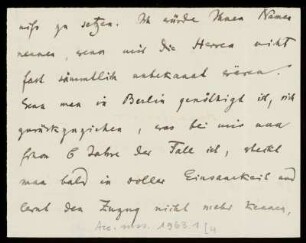 nis zu setzen. Ich würde Ihnen Namen
nennen, wenn mir die Herren nicht
fast sämmtlich unbekannt wären.
Wenn man in Berlin genöthigt ist, sich
zurückzuziehen, was bei mir nun
schon 6 Jahre der Fall ist, steckt
man bald in voller Einsamkeit und
lernt den Zuzug nicht mehr kennen,
Acc. mss. 1963.1 [4